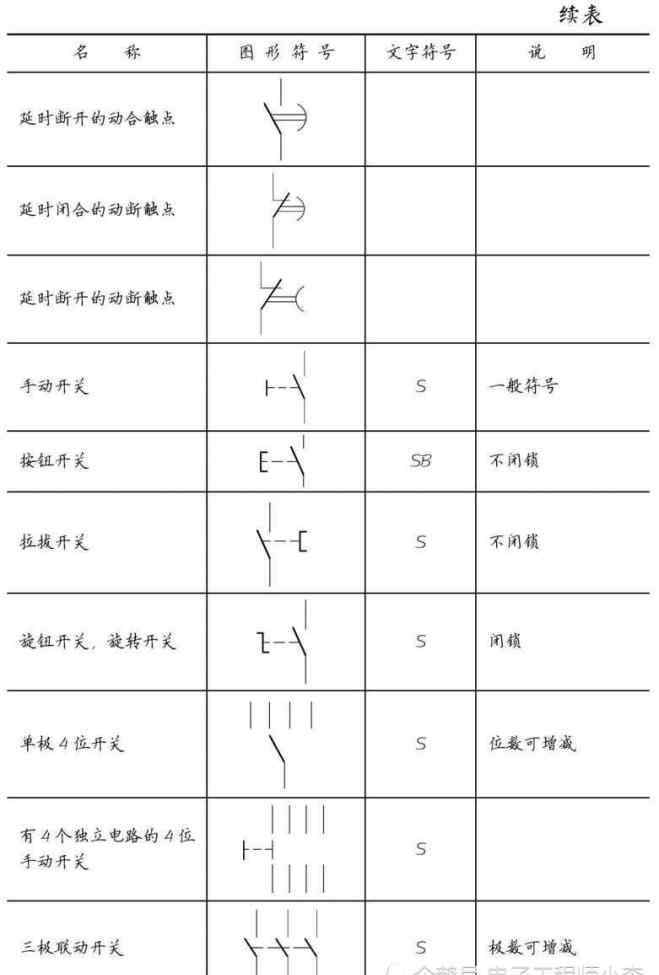 续表
名 称 图形符号 文字符号 说 明
延时断开的动合触点
延时闭合的动断触点
延时断开的动断触点
手动开关 S 一般符号
按钮开关 SB 不闭锁
拉拔开关 S 不闭锁
旋钮开关，旋转开关 S 闭锁
单极4位开关 S 位数可增减
有4个独立电路的4位
手动开关 S
三极联动开关 S 极数可增减